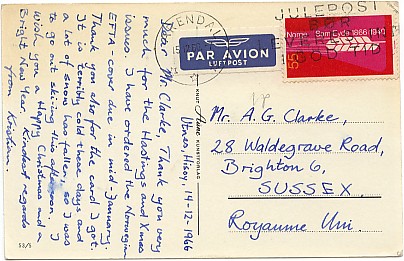 Utnes, Hisøy, 14-12-1966
Dear Mr. Clarke, Thank you very
much for the Hastings and Xmas
issues. I have ordered the Norwegian
EFTA cover due in mid-January.
Thank you also for the card I got.
It is terribly cold these days and
a lot of snow has fallen, so I was
to go out skiing this afternoon. I
wish you a Happy Christmas and a
Bright New Year. Kindest regards
from Kristian.
53/5
KNUT Aune KUNSTFORLAG
PAR AVION
LUFTPOST
ENDAL
JULEPOST
BØR
Norge Sam Eyde 1866 1940
55
Mr. A.G. Clarke,
28 Waldegrave Road,
Brighton 6,
SUSSEX
Royaume Uni.